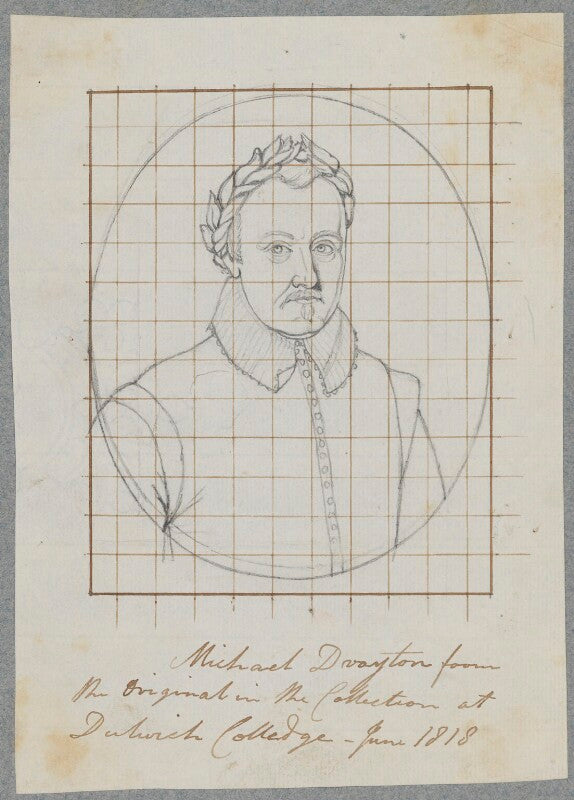 Michael Drayton from
the Original in the Collection at
Dulwich Colledge - June 1818